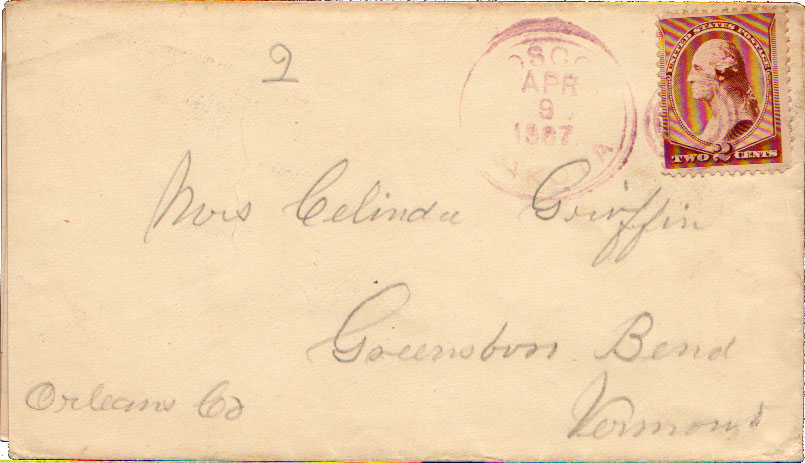 2
APR
9
1887
UNITED STATES POSTAGE
TWO 2 CENTS
Mrs Celinda Griffin
Greensboro Bend
Orleans Co
Vermont